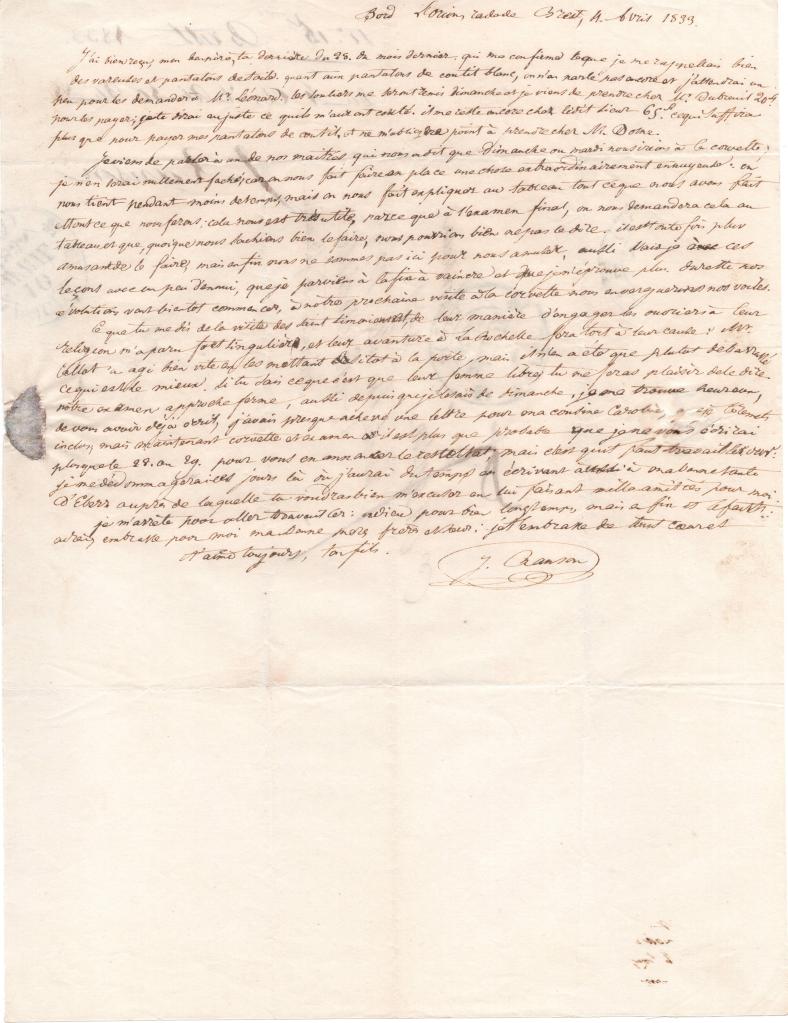 Bord L'orion, rade de Brest, 4 Avril 1833.
J'ai bien reçu, mon bon père, ta dernière du 28. du mois dernier, qui me confirme ce que je me rappellais bien
des vareuses et pantalons de toile. quant aux pantalons de coutil blanc, on n'en parle pas encore et j'attendrai un
peu pour les demander à Mr. Léonard. les souliers me seront remis dimanche et je viens de prendre chez Mr. Dubreuil 20 f
pour les payer; je te dirai au juste ce qu'ils m'auront couté. il me reste encore chez ledit sieur 65. ce qui suffira
plus que pour payer mes pantalons de coutil, et ne m'obligera point à prendre chez M. Dosne.
Je viens de parler à un de nos maîtres, qui nous a dit que dimanche ou mardi nous irions à la corvette;
je n'en serai nullement faché; car on nous fait faire en place une chose extraordinairement ennuyeuse: on
nous tient pendant moins de temps, mais on nous fait expliquer au tableau tout ce que nous avons fait
et tout ce que nous ferons; cela nous est très utile, parce que à l'examen final, on nous demandera cela au
tableau et que, quoique nous sachions bien le faire, nous pourrions bien ne pas le dire. il est toute fois plus
amusant de le faire, mais enfin nous ne sommes pas ici pour nous amuser, aussi vais-je à ces
leçons avec un peu d'ennui, que je parviens à la fin à vaincre et que je n'éprouve plus. du reste nos
évolutions vont bientot commencer, à notre prochaine visite à la corvette nous enverguerons nos voiles.
Ce que tu me dis de la visite des saint simoniens, de leur manière d'engager les ouvriers à leur
religion m'a paru fort singulière, et leur avanture à La Rochelle fera tort à leur cause: Mr.
Callot a agi bien vite en les mettant de sitot à la porte, mais
ce qui est le mieux. si tu sais ce que c'est que leur femme libre, tu me feras plaisir de le dire.
notre examen approche ferme, aussi depuis que je sais de dimanche, je me trouve heureux,
de vous avoir déjà écrit, j'avais presque achevé une lettre pour ma cousine Caroline,
inclus; mais maintenant corvette et examen il est plus que probable que je ne vous écrirai
plus que le 28. au 29. pour vous en annoncer le resultat; mais c'est qu'il faut travailler
je me dédommagerai ces jours là où j'aurai du temps en écrivant aussi à ma bonne tante
D'Ebers auprès de laquelle tu voudras bien m'excuser en lui faisant mille amitiés pour moi.
je m'arrête pour aller travailler: adieu pour bien longtemps, mais a fin
embrasse pour moi ma bonne mère, frères et sœur: je t'embrasse de tout cœur et
t'aime toujours, ton fils.
J. Chanson